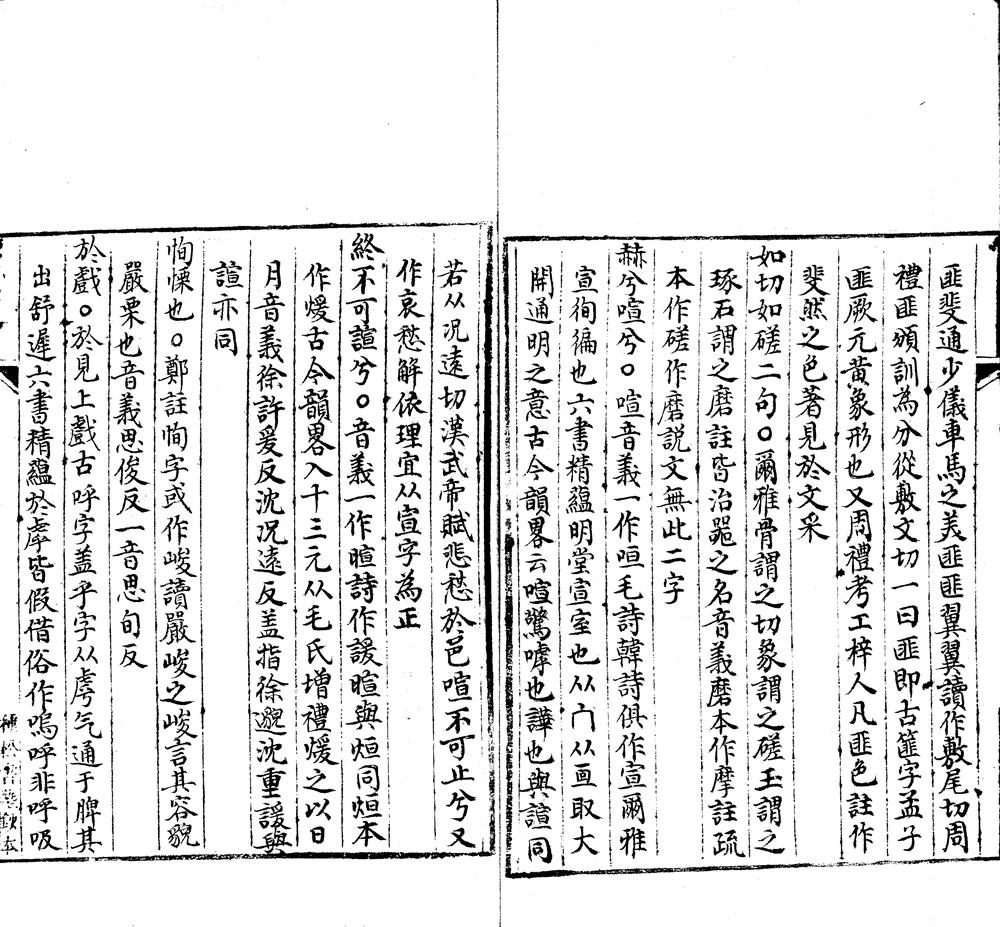 匪斐通少儀車馬之美匪匪翼翼讀作敷尾切周
禮匪頒訓為分從敷文切一曰匪即古篚字孟子
匪厥元黃象形也又周禮考工梓人凡匪色註作
斐然之色著見於文采
如切如磋二句○爾雅骨謂之切象謂之磋玉謂之
琢石謂之磨註皆治噐之名音義磨本作摩註疏
本作磋作磨説文無此二字
赫兮喧兮○喧音義一作咺毛詩韓詩俱作宣爾雅
宣徇徧也六書精蘊明堂宣室也从宀从亘取大
開通明之意古今韻畧云喧驚嘑也譁也與諠同
若从况遠切漢武帝賦悲愁於邑喧不可止兮又
作哀愁解依理宜从宣字為正
終不可諠兮○音義一作暄詩作諼暄與烜同烜本
作煖古今韻畧入十三元从毛氏增禮煖之以日
月音義徐許爰反沈况遠反盖指徐邈沈重諼與
諠亦同
恂慄也○鄭註恂字或作峻讀嚴峻之峻言其容貌
嚴栗也音義思俊反一音思旬反
於戲○於見上戲古呼字盖乎字从虖气通于脾其
出舒遲六書精蘊於虖皆假借俗作嗚呼非呼吸
種松書塾鈔本